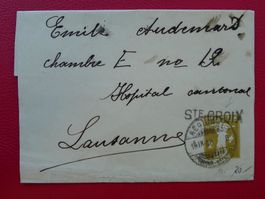 Emile Audemars
chambre E no 12
Hopital cantonal
STE CROIX
Lausanne